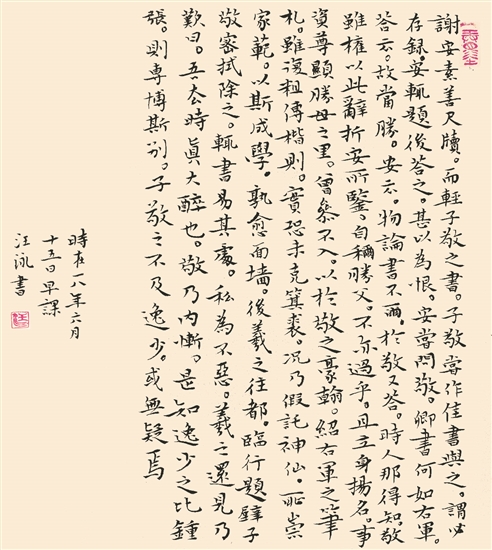 謝安素善尺牘。而輕子敬之書。子敬嘗作佳書與之。謂必
存録。安輒題後答之。甚以為恨。安嘗問敬。卿書何如右軍。
答云。故當勝。安云。物論書不爾。於敬又答。時人那得知。敬
雖權以此辭折安所鑒。自稱勝父。不亦過乎。且立身揚名。事
資尊顯勝母之里。曾參不入。以於敬之豪翰。紹右軍之筆
札。雖復粗傳楷則。實恐未克箕裘。況乃假託神仙。恥崇
家範。以斯成學。孰愈面墻。後羲之往都。臨行題壁子
敬密拭除之。輒書易其處。私為不惡。羲之還見乃
歎曰。吾去時真大醉也。敬乃內慚。是知逸少之比鍾
張。則專博斯別。子敬之不及逸少。或無疑焉
時在一八年六月
十五日早課
汪泳書